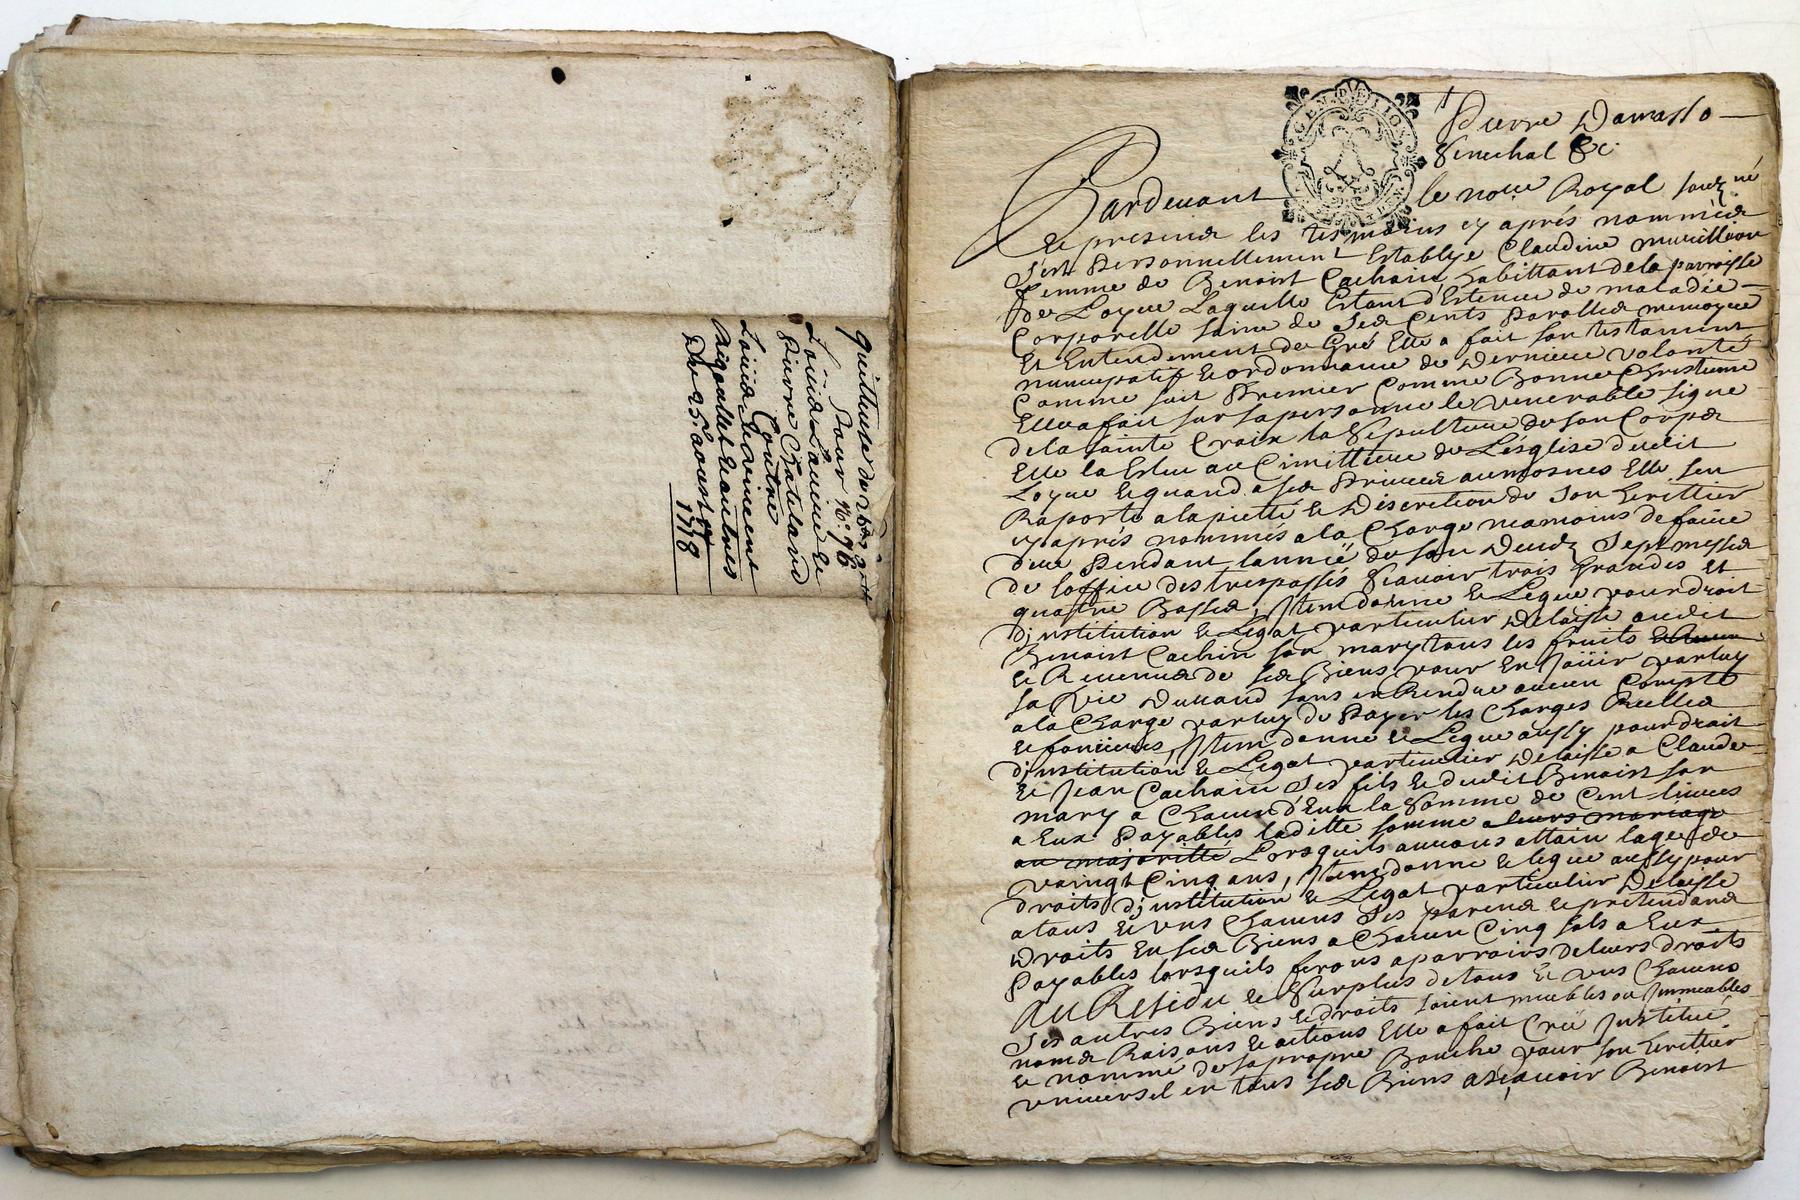 quittance de
pour n.° 96
Louise Laurie et
Pierre Chatelard
Contre
Louise et vincent
Rigoallet et autres
Du 25.e aoust
1718
GEN DE LION
Pierre Damasso
Senechal &c.
Pardeuant le no.re Royal souz.né
Et presence les tesmoins cy aprés nommées
s'est Personnellement Establye Claudine
femme de Benoist Cachain habittant de la parroisse
de Loyue Laquelle Estant d'Estenue de maladie
Corporelle saine de Ses Cents Parolles memoyre
Et Entendement de Gré Elle a fait son testament
nuncupatif et ordonnance de Derniere volonté
Comme suit Premier Comme Bonne Christiene
Elle a fait sur sa personne le venerable signe
de la sainte Croix la Sepulture de son Corps
Elle la Eslue au Cimittiere de L'esglise dudit
Loyue Et quand a ses Pieuses aumosnes Elle sen
Raporte a la pietté et Discretion de Son herittier
cy aprés nommés a la Charge neamoins de faire
dire Pendant lannée de son Deudz Sept messes
de loffice des trespassés Scauoir trois Grandes et
quattre Basses, Item donne et Legue pour droit
d'jnstitution et Legat particulier Delaisse audit
Benoist Cachin son mary tous les fruits
et Reuenus de ses Biens pour En Jouir par luy
sa Vie Durand sans en Rendre aucun Compte
a la Charge par luy de Payer les Charges Reelles
et foncieres, Item donne et Legue aussy pour droit
d'jnstitution et Legat particulier Delaisse a Claude
et Jean Cachain Ses fils et dudit Benoist son
mary a Chacun d'Eux la Somme de Cent liures
a Eux Payables laditte somme a leurs mariage
ou majoritté Lorsquils auront attain lage de
vaingt Cinq ans, Item donne et legue aussy pour
droits d'jnstitution et Legat particulier Delaisse
a tous et vns Chacuns Ses parens et pretendans
Droits En ses Biens a Chacun Cinq sols a Eux
Payables lorsquils feront aparroirs de leurs droits
Au Residu et Surplus de tous et vns Chacuns
Ses autres Biens et droits soient meubles ou Jmmeubles
noms Raisons et actions Elle a fait Créé Justitué
et nommé de sa propre Bouche pour son herittier
vniuersel en tous ses Biens asçauoir Benoist